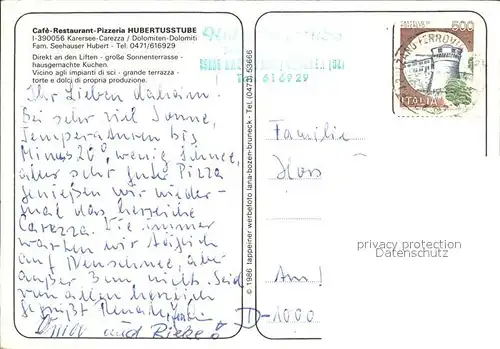 Café-Restaurant-Pizzeria HUBERTUSSTUBE
I-390056 Karersee-Carezza / Dolomiten-Dolomiti
Fam. Seehauser Hubert - Tel. 0471/616929
Direkt an den Liften - große Sonnenterrasse -
hausgemachte Kuchen.
Vicino agli impianti di sci - grande terrazza -
torte e dolci di propria produzione.
Ihr Lieben daheim.
Bei sehr viel Sonne,
Temperaturen bis
Minus 20°, wenig Schnee,
aber sehr gute Pizza
genießen wir wieder-
mal das herrliche
Carezza. Wie immer
warten wir täglich
auf Neuschnee, aber
außer 3 cm nicht. Seid
von allen herzlich
gegrüßt Renate,
und
© 1986 tappeiner werbefoto lana-bozen-bruneck - Tel. (0473) 53666
Tel. 616929
500
CASTELLO DI
ROVERETO
FERROVIA
ITALIA
Familie
Am
D-1000
privacy protection
Datenschutz